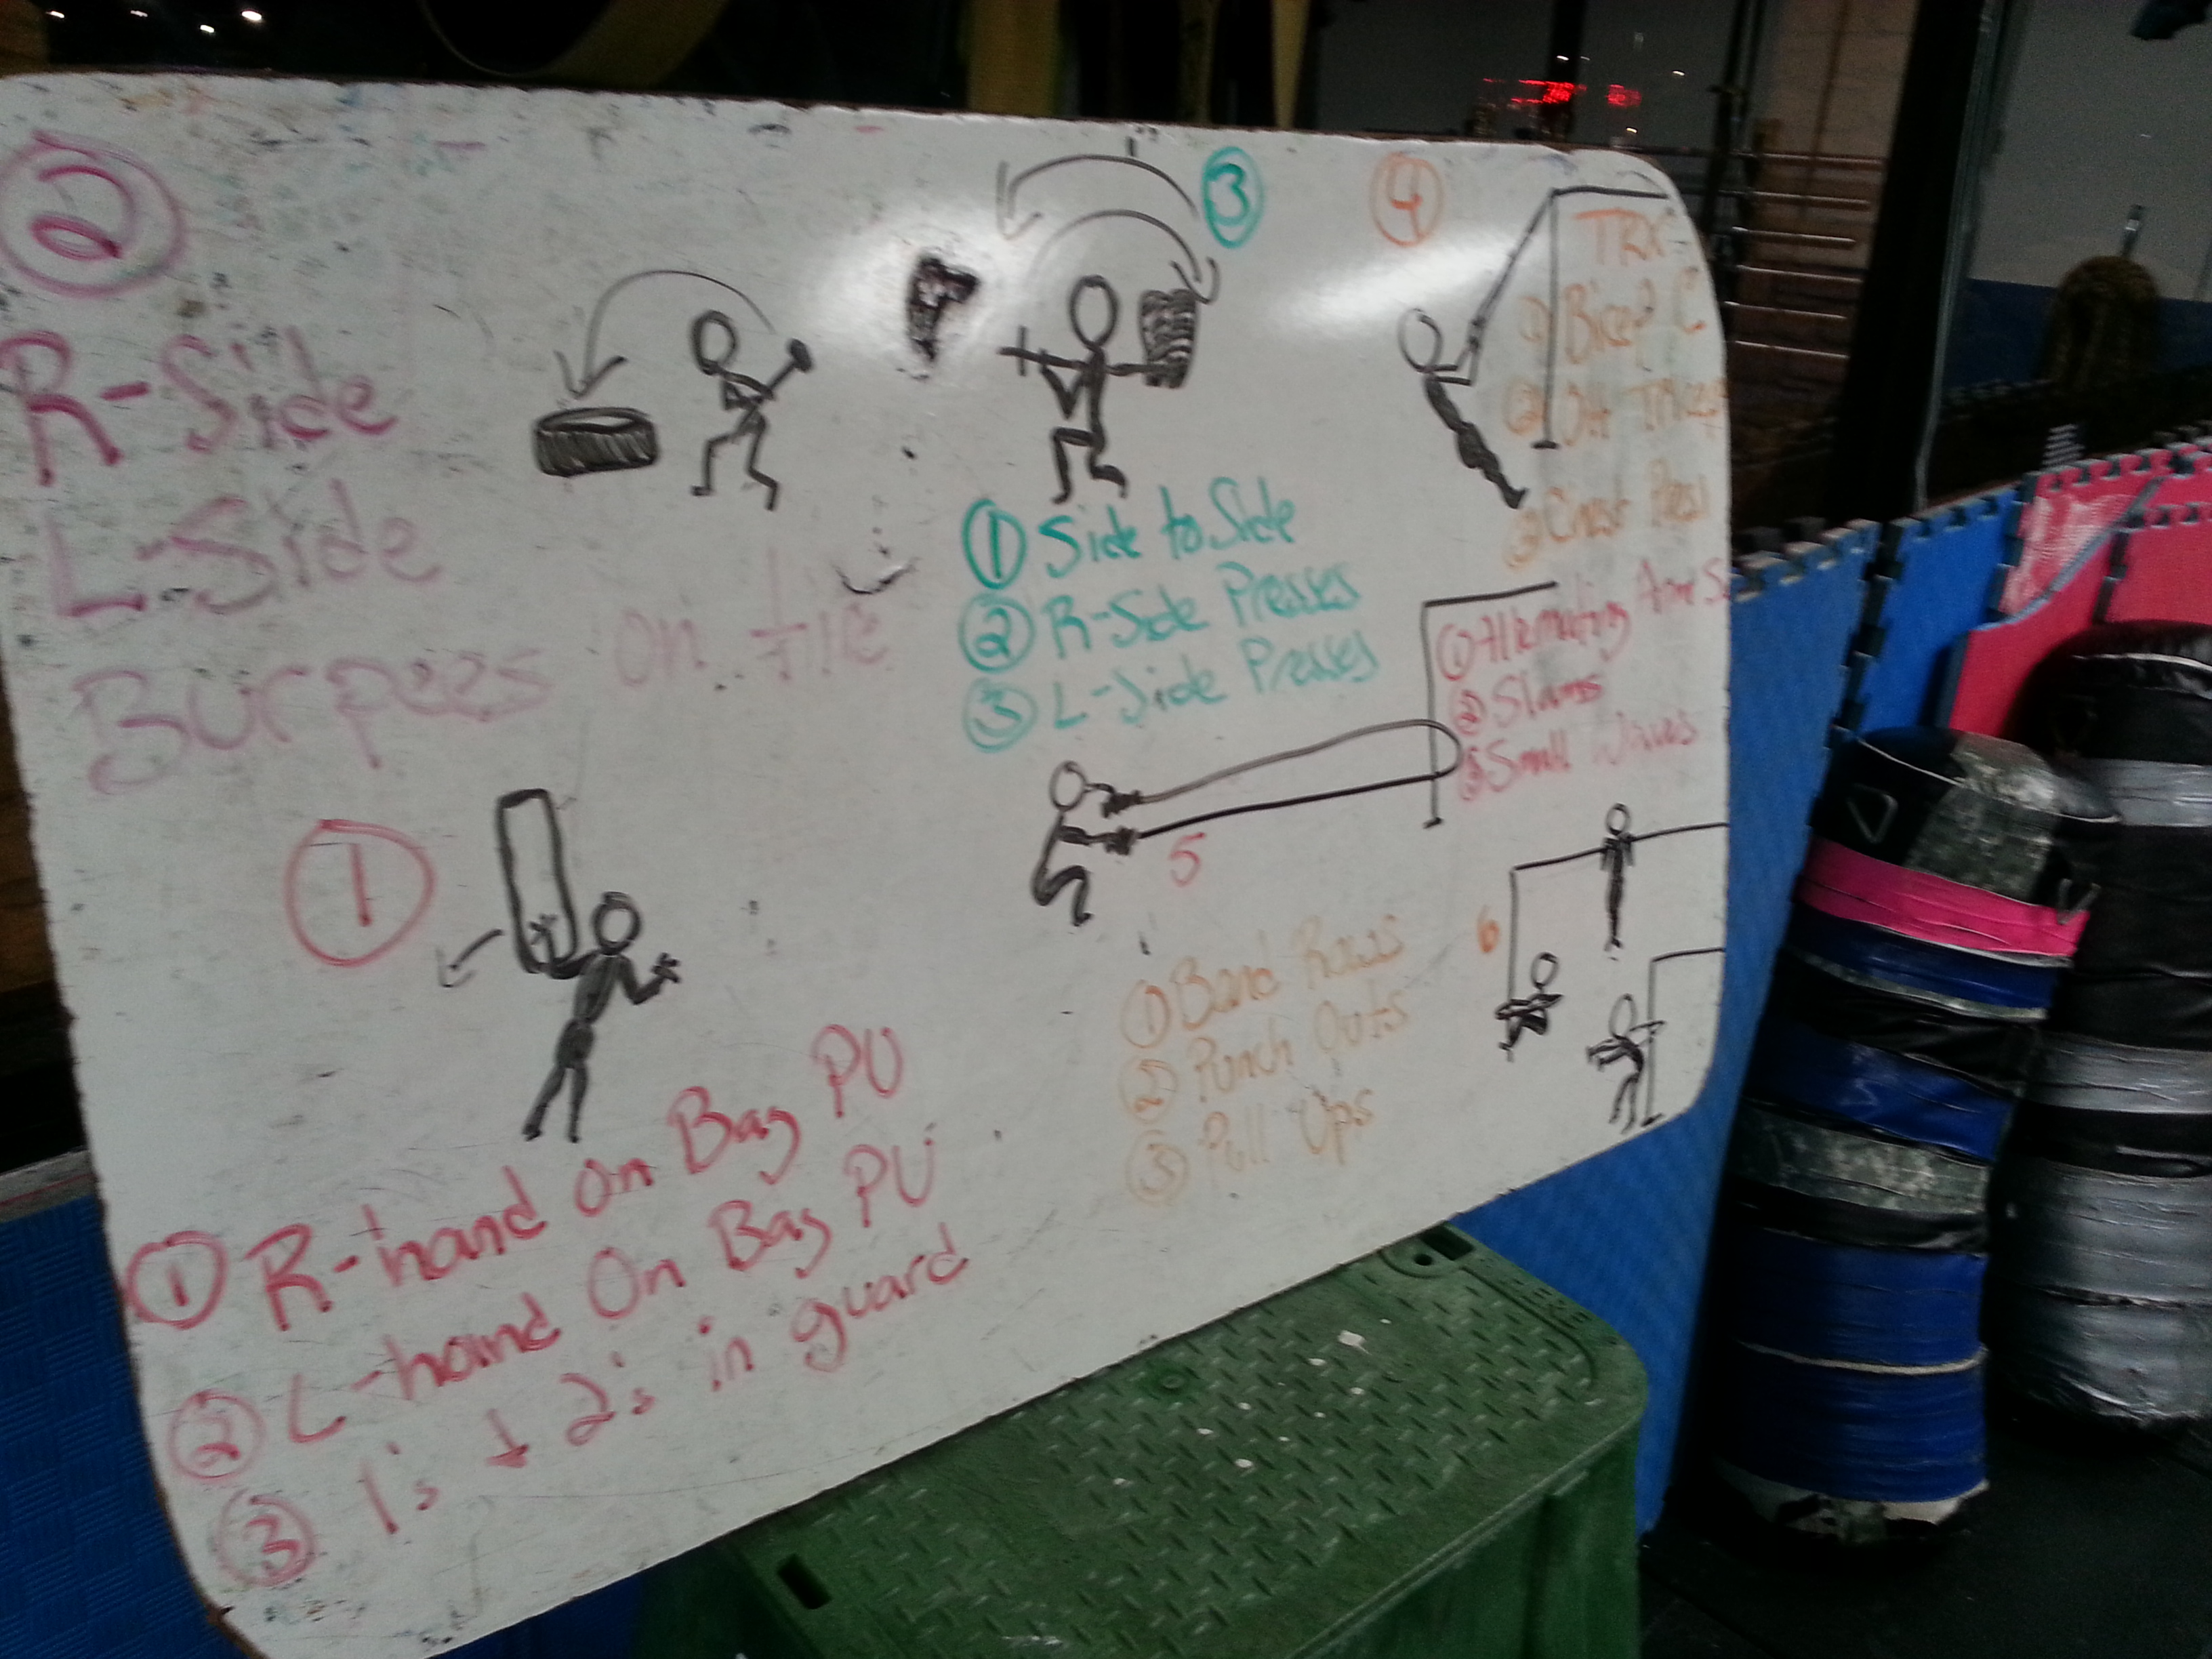 2
R-Side
L-Side
Burpees on Tire
3
1 Side to Side
2 R-Side Presses
3 L-Side Presses
4
TRX-
1 Bicep C
2 OH Tricep
3 Chest Press
1
1 R-hand on Bag PU
2 L-hand On Bag PU
3 1's + 2's in guard
5
1 Alternating Arm S
2 Slams
3 Small Waves
6
1 Band Rows
2 Punch Outs
3 Pull Ups